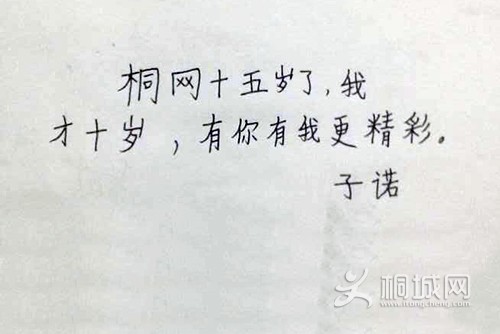 桐网十五岁了,我
才十岁,有你有我更精彩。
子诺
桐城网